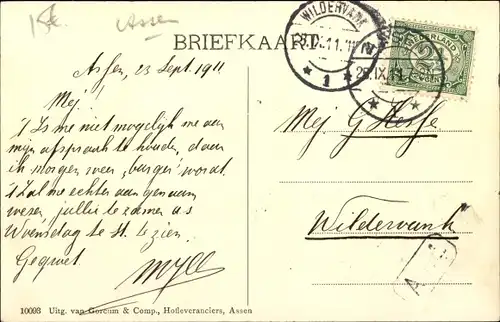 Assen
BRIEFKAART
WILDERVANK
NEDERLAND
Assen 23 Sept. 1911
Mej!
't Is me niet mogelijk me aan
mijn afspraak te houden, daar
ik morgen weer „burger" wordt.
't Zal me echter aangenaam
wezen jullie te zamen a.s
Woensdag te zien.
Gegroet
Mej G
Wildervank
10093 Uitg. van Gorcum & Comp., Hofleveranciers, Assen